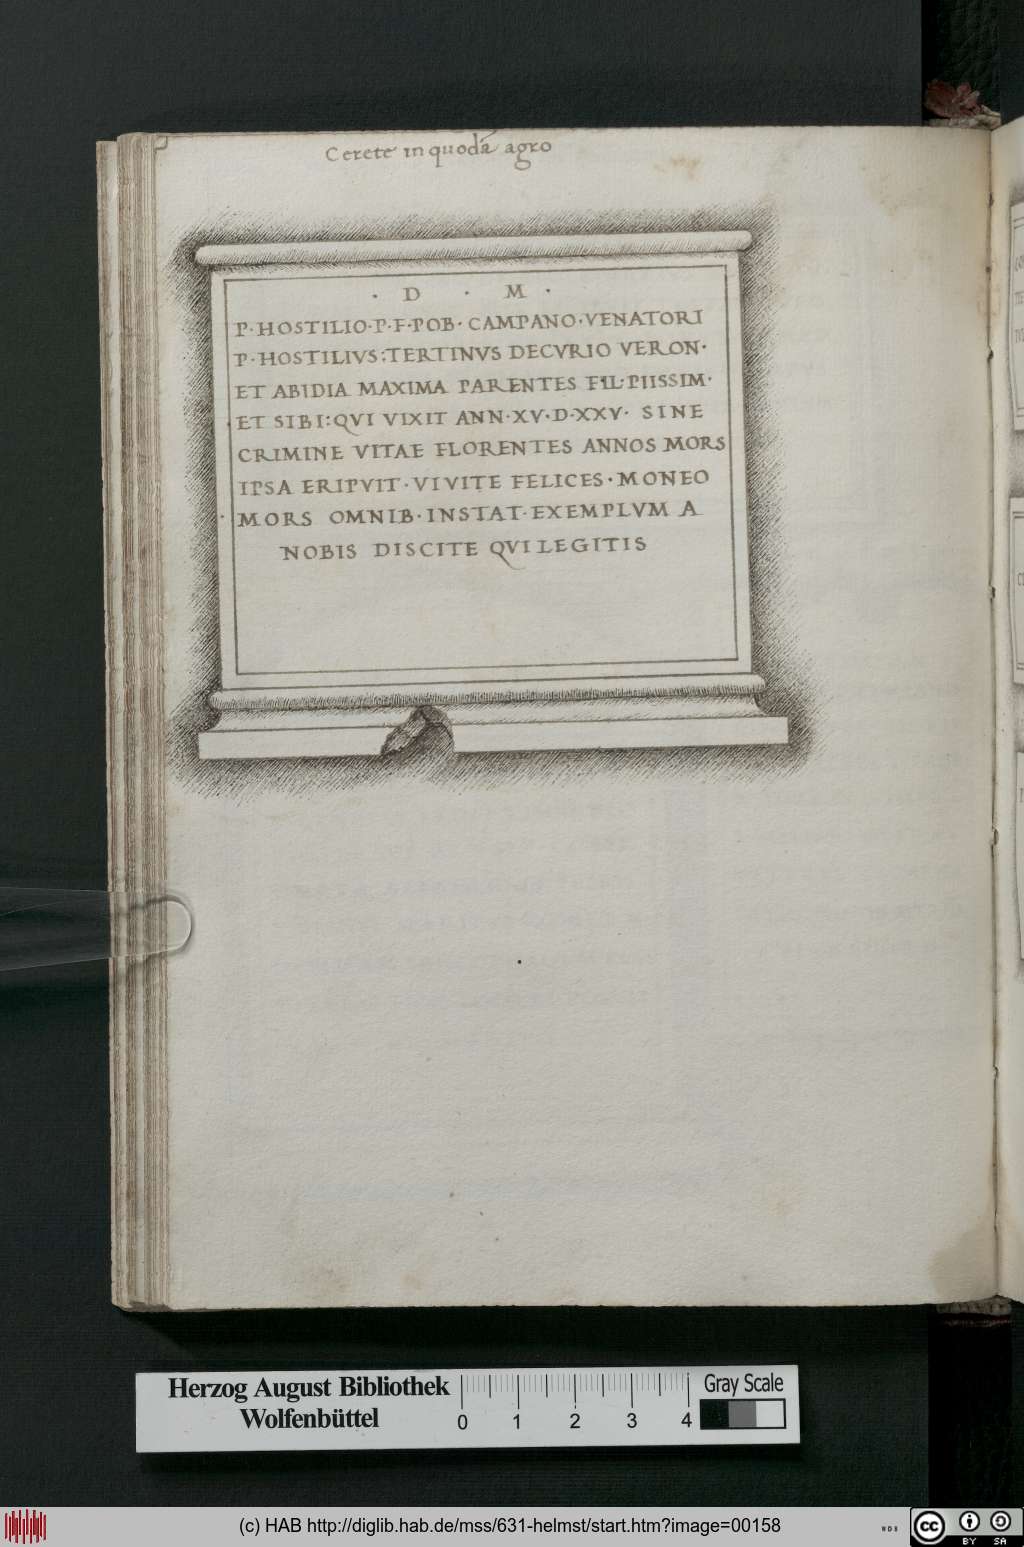 Cerete in quodã agro
· D · M ·
P·HOSTILIO·P·F·POB·CAMPANO·VENATORI
P·HOSTILIVS:TERTINVS DECVRIO VERON·
ET ABIDIA MAXIMA PARENTES FIL·PIISSIM·
·ET SIBI:QVI VIXIT ANN·XV·D·XXV· SINE
CRIMINE VITAE FLORENTES ANNOS MORS
IPSA ERIPVIT·VIVITE FELICES·MONEO
·MORS OMNIB·INSTAT·EXEMPLVM A
NOBIS DISCITE QVI LEGITIS
Herzog August Bibliothek
Wolfenbüttel
0 1 2 3 4
Gray Scale
(c) HAB http://diglib.hab.de/mss/631-helmst/start.htm?image=00158
WDB
cc
BY SA